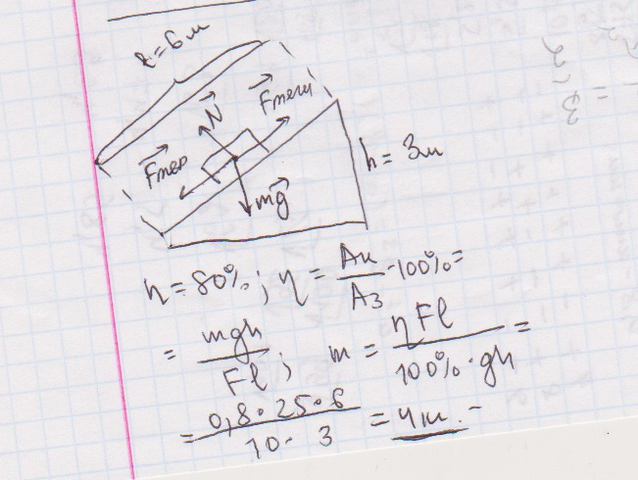 l = 6м
N
Fтяги
Fтер
mg
h = 3м
η = 80%; η = Aп/Aз · 100% =
= mgh/Fl; m = ηFl/100% · gh =
= 0,8 · 25 · 6/10 · 3 = 4кг.